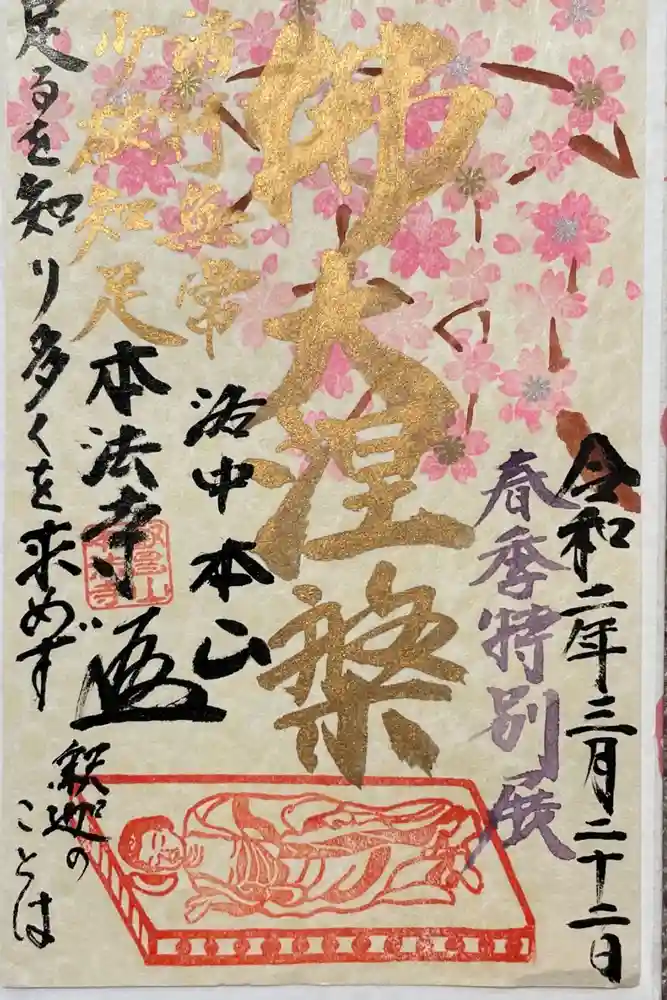 令和二年三月二十二日
春季特別展
佛大涅槃
洛中本山
諸行無常
少欲知足
本法寺
足るを知り多くを求めず
釈迦の
ことは